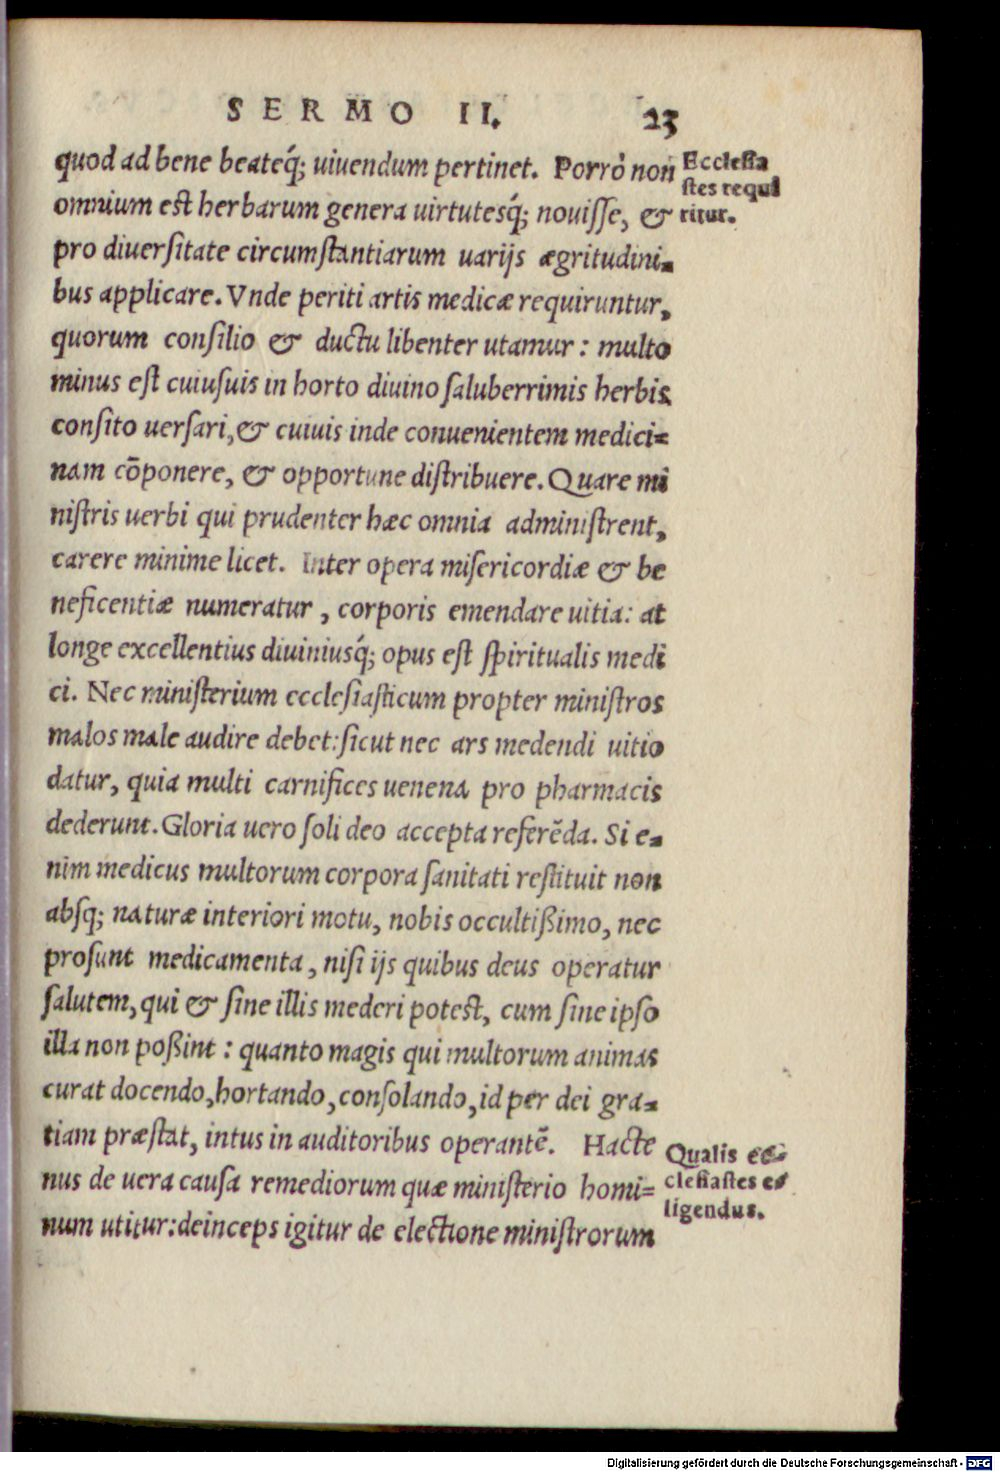 SERMO II. 23
quod ad bene beateq́; uiuendum pertinet. Porrò non
omnium est herbarum genera uirtutesq́; nouisse, &
pro diuersitate circumstantiarum uarijs ægritudini-
bus applicare. Vnde periti artis medicæ requiruntur,
quorum consilio & ductu libenter utamur: multo
minus est cuiusuis in horto diuino saluberrimis herbis
consito uersari, & cuiuis inde conuenientem medici-
nam cōponere, & opportune distribuere. Quare mi
nistris uerbi qui prudenter hæc omnia administrent,
carere minime licet. Inter opera misericordiæ & be
neficentiæ numeratur, corporis emendare uitia: at
longe excellentius diuiniusq́; opus est spiritualis medi
ci. Nec ministerium ecclesiasticum propter ministros
malos male audire debet: sicut nec ars medendi uitio
datur, quia multi carnifices uenena pro pharmacis
dederunt. Gloria uero soli deo accepta referēda. Si e-
nim medicus multorum corpora sanitati restituit non
absq; naturæ interiori motu, nobis occultißimo, nec
prosunt medicamenta, nisi ijs quibus deus operatur
salutem, qui & sine illis mederi potest, cum sine ipso
illa non poßint: quanto magis qui multorum animas
curat docendo, hortando, consolando, id per dei gra-
tiam præstat, intus in auditoribus operantē. Hacte
nus de uera causa remediorum quæ ministerio homi-
num utitur: deinceps igitur de electione ministrorum
Ecclesia
stes requi
ritur.
Qualis ec-
clesiastes e-
ligendus.
Digitalisierung gefördert durch die Deutsche Forschungsgemeinschaft - DFG